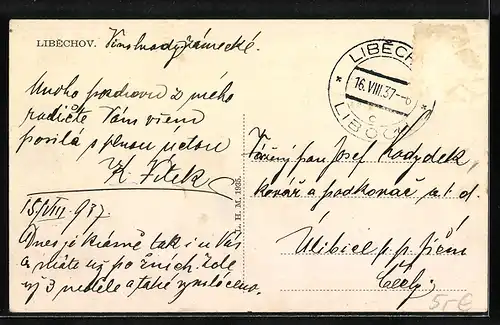 LIBĚCHOV. Vinohrady zámecké.
Mnoho pozdravů z mého
Vám všem
posílá s plnou úctou
K. Vítek
15/VIII 937
Dnes je krásně tak i u Vás
a máte už po žních zde
už 3 neděle a také vymláceno.
L. H. M. 1935.
LIBĚCH
16.VIII.37.-8
C
LIBOCH
Vážený pan Josef
kovář a podkovář a t. d.
Úlibice p. p. Jičín
Čechy.
5,-€